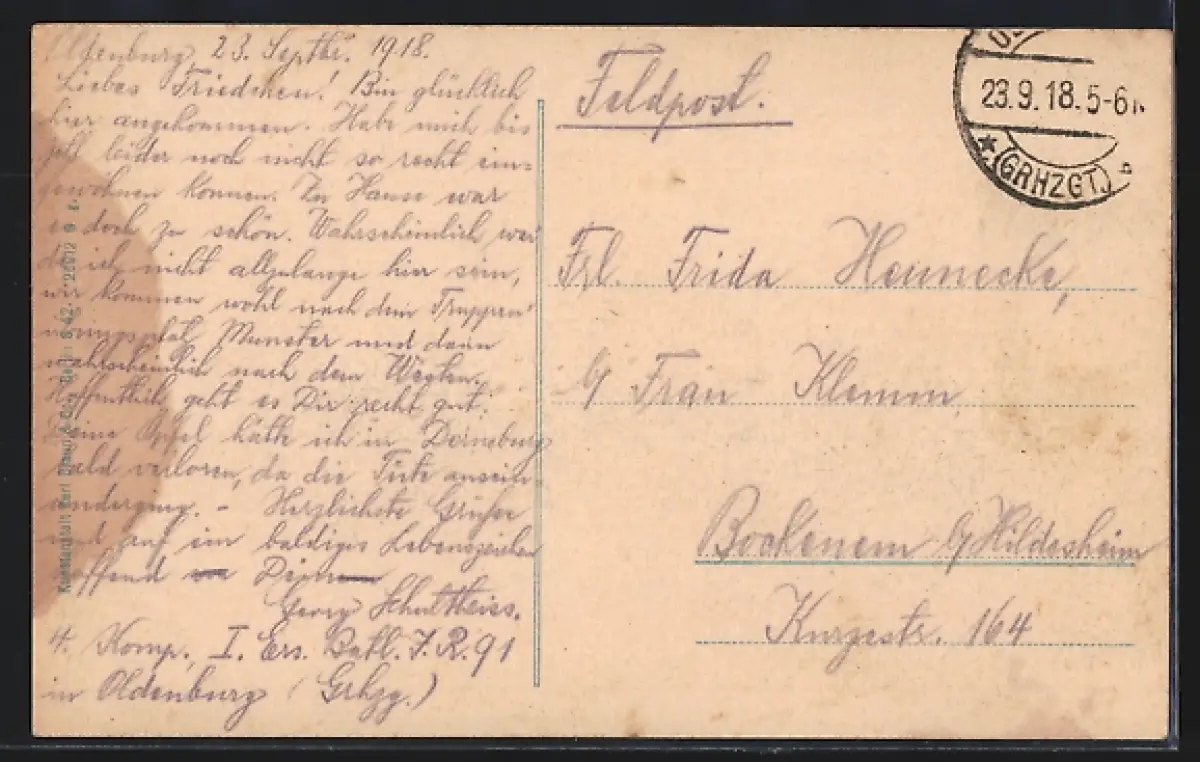 Oldenburg, 23. Septbr. 1918.
Liebes Friedchen! Bin glücklich
hier angekommen. Habe mich bis
jetzt leider noch nicht so recht ein-
gewöhnen können. Zu Hause war
es doch zu schön. Wahrscheinlich wer-
de ich nicht allzulange hier sein,
wir kommen wohl nach dem Truppen-
übungsplatz Munster und dann
wahrscheinlich nach dem Westen.
Hoffentlich geht es Dir recht gut.
Deine Äpfel hätte ich in Derneburg
bald verloren, da die Tüte ausein-
anderging. – Herzlichste Grüsse
und auf ein baldiges Lebenszeichen
hoffend
Georg Schultheiss.
4. Komp., I. Ers. Batl. I.R. 91
in Oldenburg (Grhzg.)
Feldpost.
23.9.18.5-6
(GRHZGT.)
Frl. Frida Hennecke,
b/ Frau Klemm
Bockenem b/Hildesheim
Kurzestr. 164